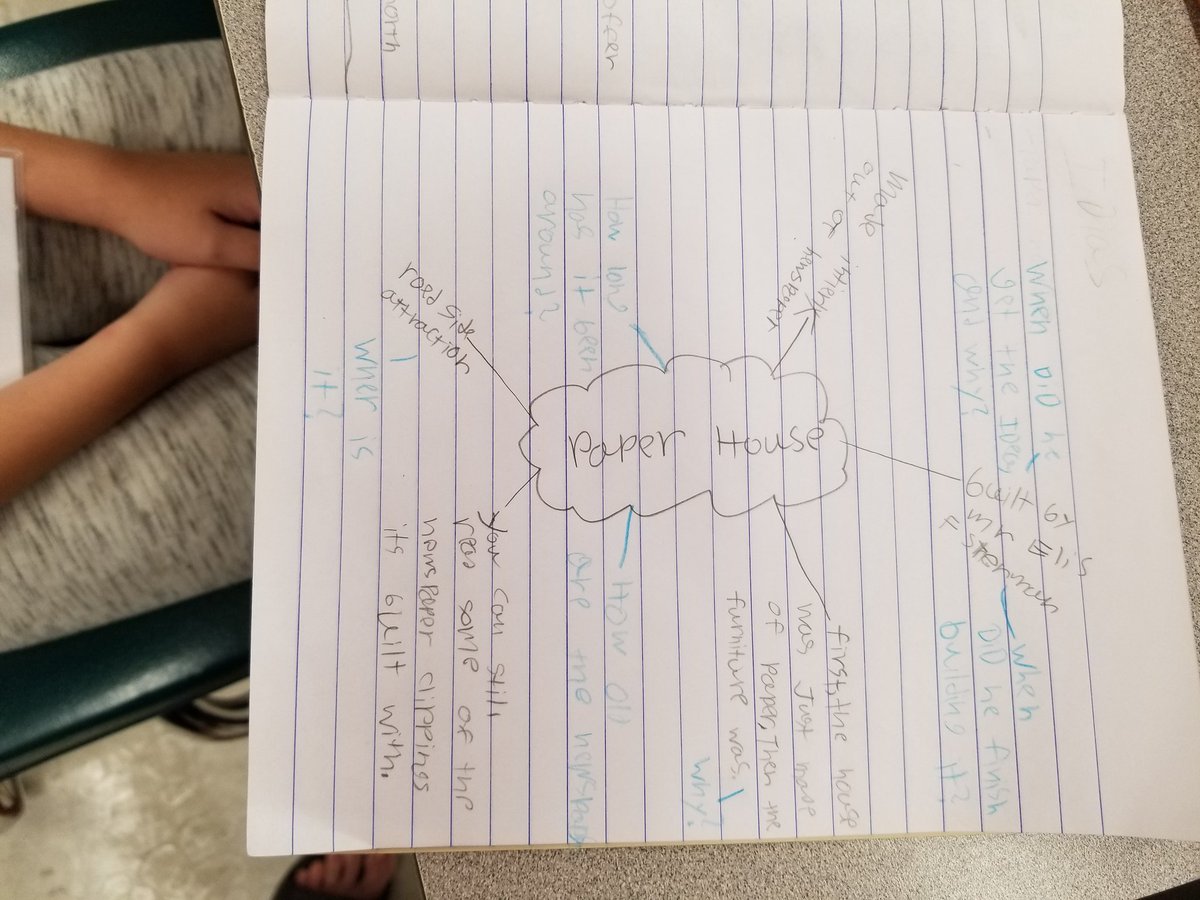 When DiD he
get the IDea
and why?
Built by
Mr
When
DiD he finish
building it?
Made
out of
newspaper
Paper House
first, the house
was Just made
of paper, Then the
furniture was.
why?
How long
has it been
around?
How olD
are the
road side
attraction
wher is
it?
you can still
read some of the
newspaper clippings
its built with.
offer
north